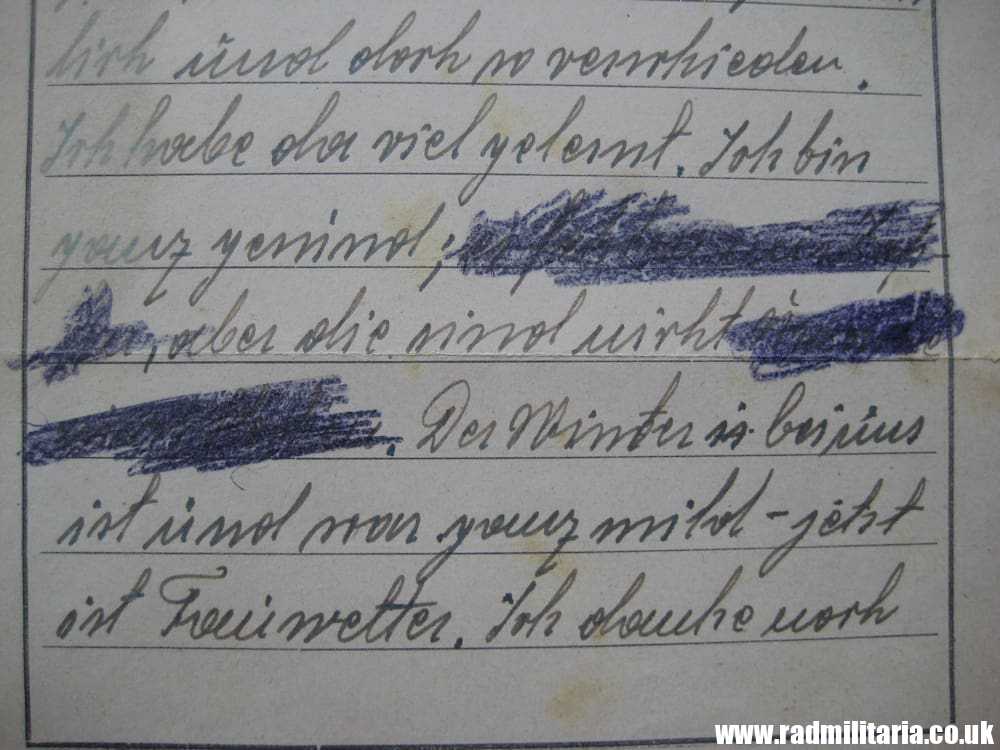 lich und doch so verschieden.
Ich habe da viel gelernt. Ich bin
ganz gesund;
, aber die sind nicht
. Der Winter is bei uns
ist und war ganz mild - jetzt
ist Tauwetter. Ich danke noch
www.radmilitaria.co.uk